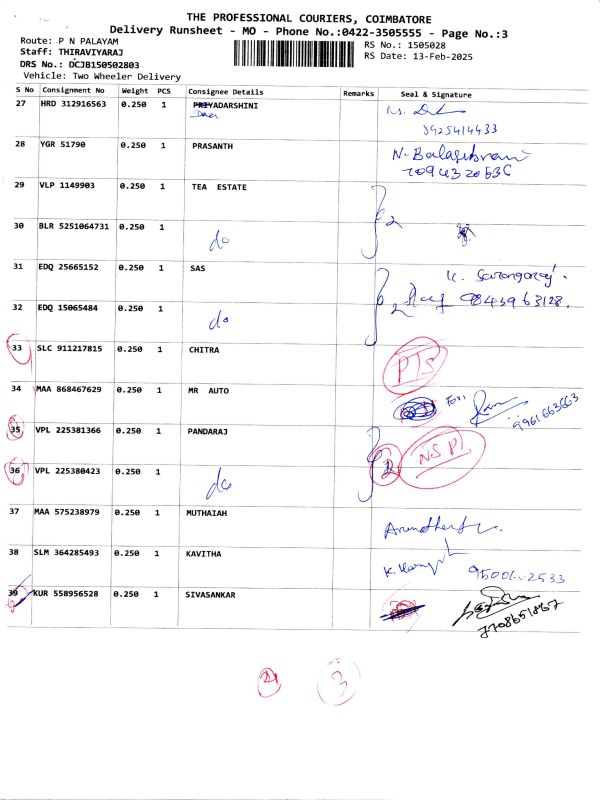 THE PROFESSIONAL COURIERS, COIMBATORE
Delivery Runsheet - MO - Phone No.:0422-3505555 - Page No.:3
Route: P N PALAYAM
Staff: THIRAVIYARAJ
DRS No.: DCJB150502803
Vehicle: Two Wheeler Delivery
RS No.: 1505028
RS Date: 13-Feb-2025
S No Consignment No Weight PCS Consignee Details Remarks Seal & Signature
27 HRD 312916563 0.250 1 PRIYADARSHINI
8925414433
28 YGR 51790 0.250 1 PRASANTH
N. Balasubramani
29 VLP 1149903 0.250 1 TEA ESTATE
2
30 BLR 5251064731 0.250 1
do
31 EDQ 25665152 0.250 1 SAS
2 9843963128.
32 EDQ 15065484 0.250 1
do
33 SLC 911217815 0.250 1 CHITRA
PTS
34 MAA 868467629 0.250 1 MR AUTO
For,
9961663663
35 VPL 225381366 0.250 1 PANDARAJ
2 NSP
36 VPL 225380423 0.250 1
do
37 MAA 575238979 0.250 1 MUTHAIAH
38 SLM 364285493 0.250 1 KAVITHA
39 KUR 558956528 0.250 1 SIVASANKAR
7708651867
3